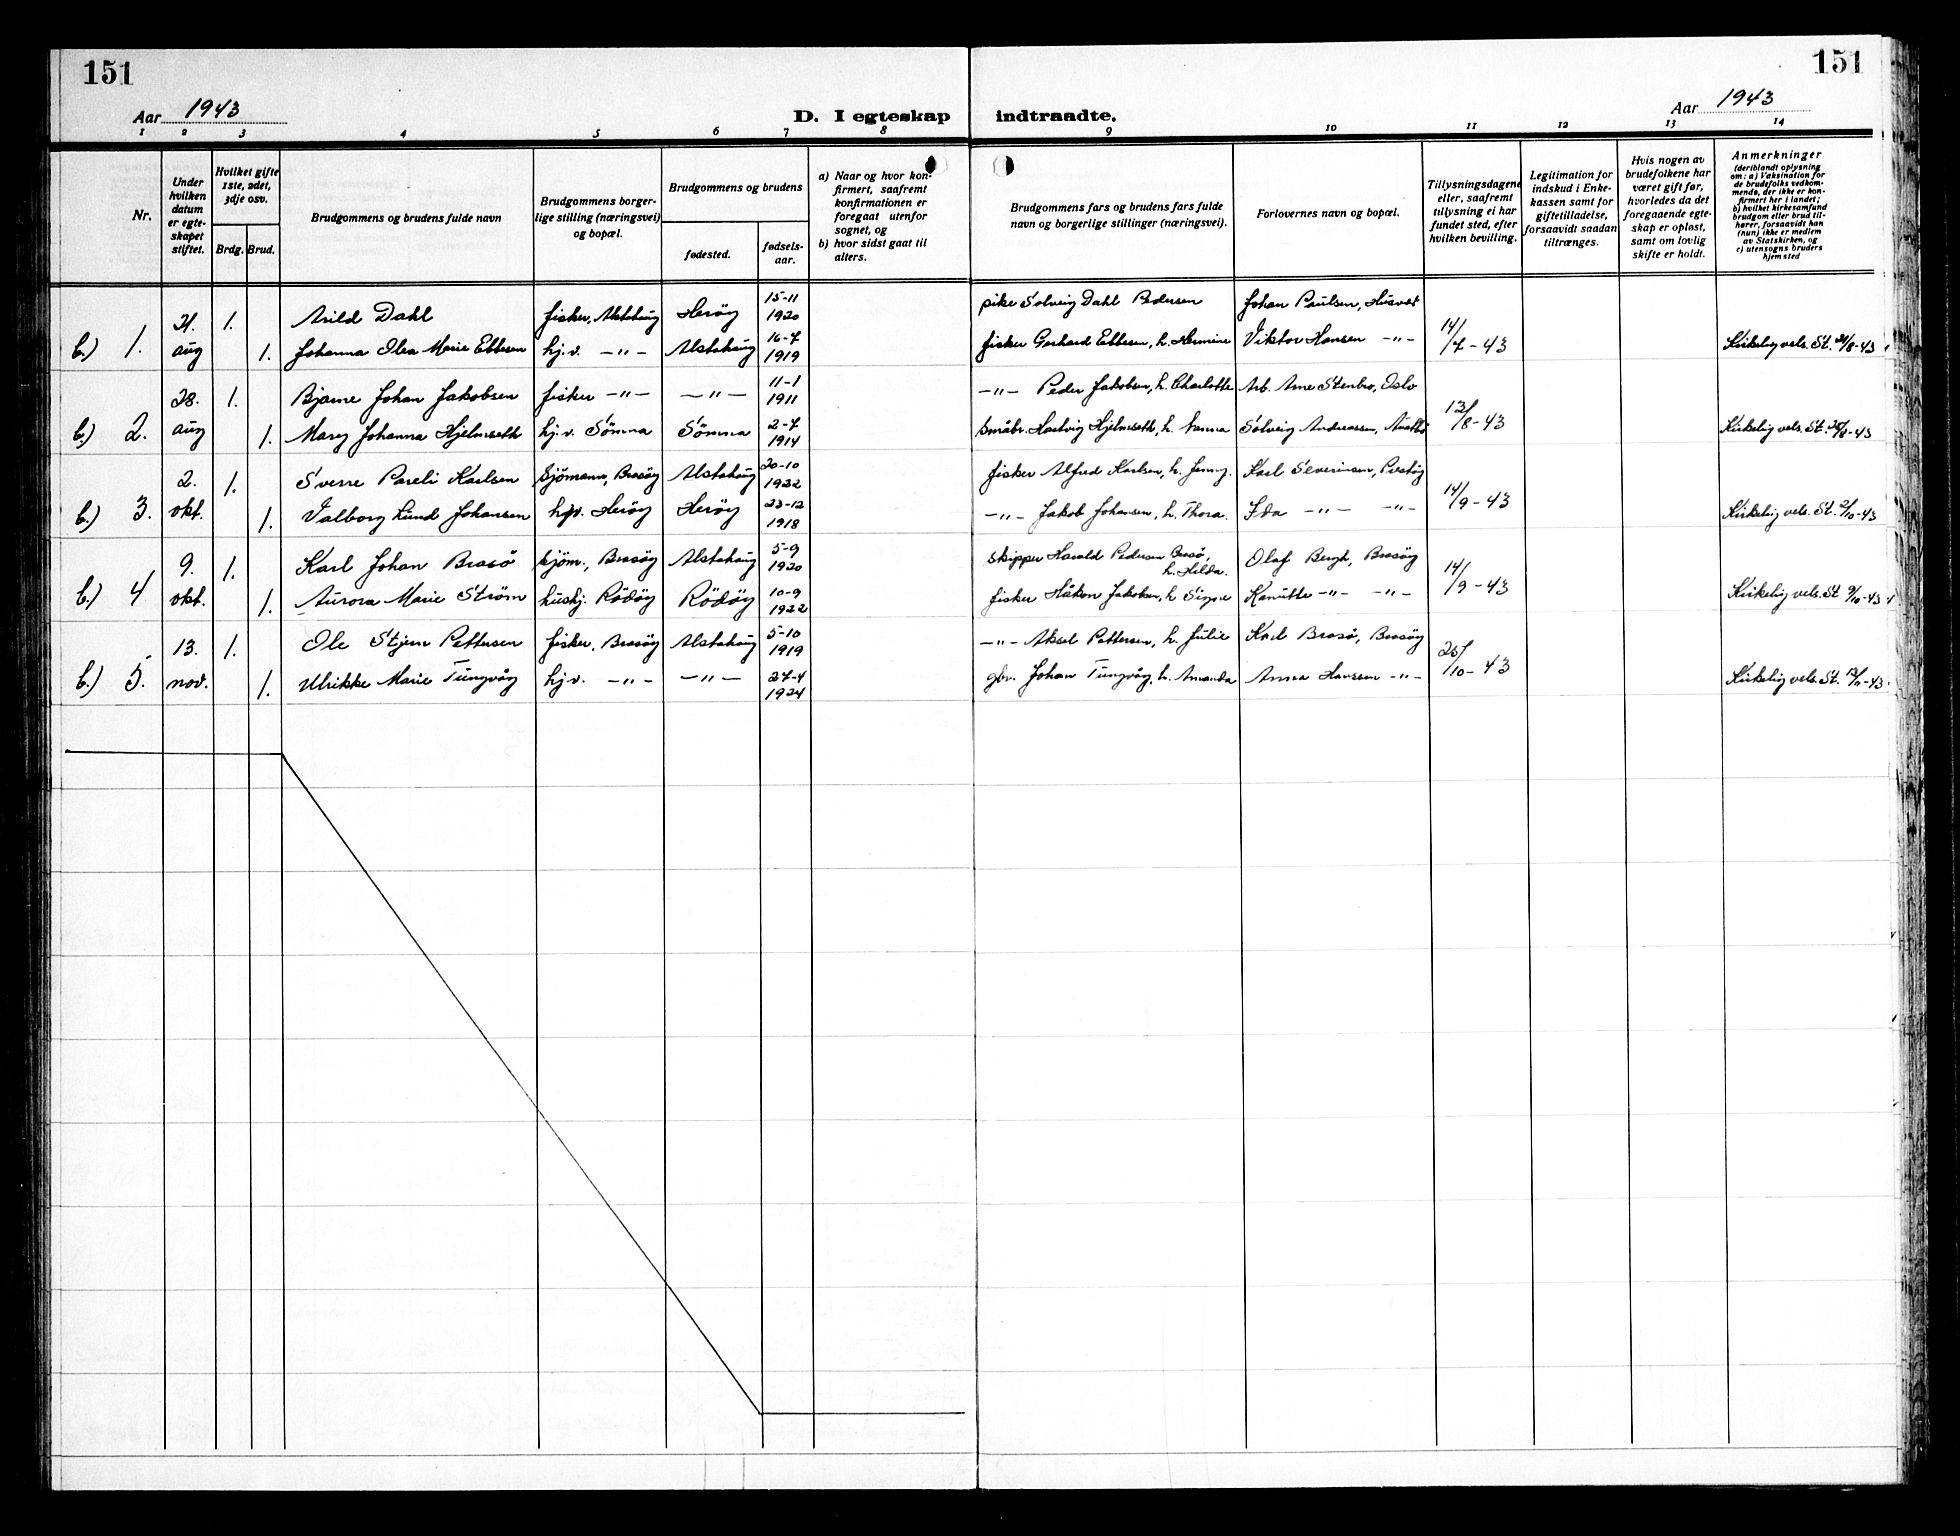 151
151
Aar 1943
D. I egteskap
indtraadte.
Aar 1943
1 2 3 4 5 6 7 8 9 10 11 12 13 14
Nr.
Under
hvilken
datum
er egte-
skapet
stiftet.
Hvilket gifte
1ste, 2det,
3dje osv.
Brdg. Brud.
Brudgommens og brudens fulde navn
Brudgommens borger-
lige stilling (næringsvei)
og bopæl.
Brudgommens og brudens
fødested.
fødsels-
aar.
a) Naar og hvor kon-
firmert, saafremt
konfirmationen er
foregaat utenfor
sognet, og
b) hvor sidst gaat til
alters.
Brudgommens fars og brudens fars fulde
navn og borgerlige stillinger (næringsvei).
Forlovernes navn og bopæl.
Tillysningsdagene
eller, saafremt
tillysning ei har
fundet sted, efter
hvilken bevilling.
Legitimation for
indskud i Enke-
kassen samt for
giftetilladelse,
forsaavidt saadan
tiltrænges.
Hvis nogen av
brudefolkene har
været gift før,
hvorledes da det
foregaaende egte-
skap er opløst,
samt om lovlig
skifte er holdt.
Anmerkninger
(deriblandt oplysning
om: a) Vaksination for
de brudefolks vedkom-
mende, der ikke er kon-
firmert her i landet;
b) hvilket kirkesamfund
brudgom eller brud til-
hører, forsaavidt han
(hun) ikke er medlem
av Statskirken, og
c) utensogns bruders
hjemsted
21. 1. Arild Dahl fisker, Alstahaug Herøy 15-11 1920 pike Solveig Dahl Pedersen Johan Paulsen, Husvær
b.) 1. aug 1. Johanna Olea Marie Ebbesen hj.v. -"- Alstahaug 16-7 1919 fisker Gerhard Ebbesen, h. Hermine Viktor Hansen -"- 14/7-43 Kirkelig vels. St. 21/8-43
28. 1. Bjarne Johan Jakobsen fisker -"- -"- 11-1 1911 -"- Peder Jakobsen, h. Charlotte Arb. Arne Stenbro, Oslo
b.) 2. aug 1. Mary Johanna Hjelmseth hj.v. Sömna Sömna 2-7 1914 småbr. Hartvig Hjelmseth, h. Nanna Solveig Andreassen, 12/8-43 Kirkelig vels. St. 28/8-43
2. 1. Sverre Pareli Karlsen sjömann, Brasöy Alstahaug 20-10 1922 fisker Alfred Karlsen, h. Jenny. Karl Severinsen,
b.) 3. okt. 1. Valborg Lund Johansen hjv. Herøy Herøy 23-12 1918 -"- Jakob Johansen, h. Thora. Ida -"- -"- 14/9-43 Kirkelig vels. St. 2/10-43
9. 1. Karl Johan Brasö sjöm., Brasöy Alstahaug 5-9 1920 skipper Harald Pedersen Brasö, h. Hilda. Olaf Bergh, Brasöy
b.) 4 okt. 1. Aurora Marie Ström hushj. Rödöy Rödöy 10-9 1922 fisker Håkon Jakobsen, h. Signe Kanutte -"- -"- 14/9-43 Kirkelig vels. St. 9/10-43
13. 1. Ole Stjern Pettersen fisker, Brasöy Alstahaug 5-10 1919 -"- Aksel Pettersen, h. Julie Karl Brasö, Brasöy
b.) 5. nov. 1. Ulrikke Marie Tungvåg hj.v. -"- -"- 27-4 1924 gbr. Johan Tungvåg, h. Amanda Anna Hanssen -"- 25/10-43 Kirkelig vels. St. 13/11-43